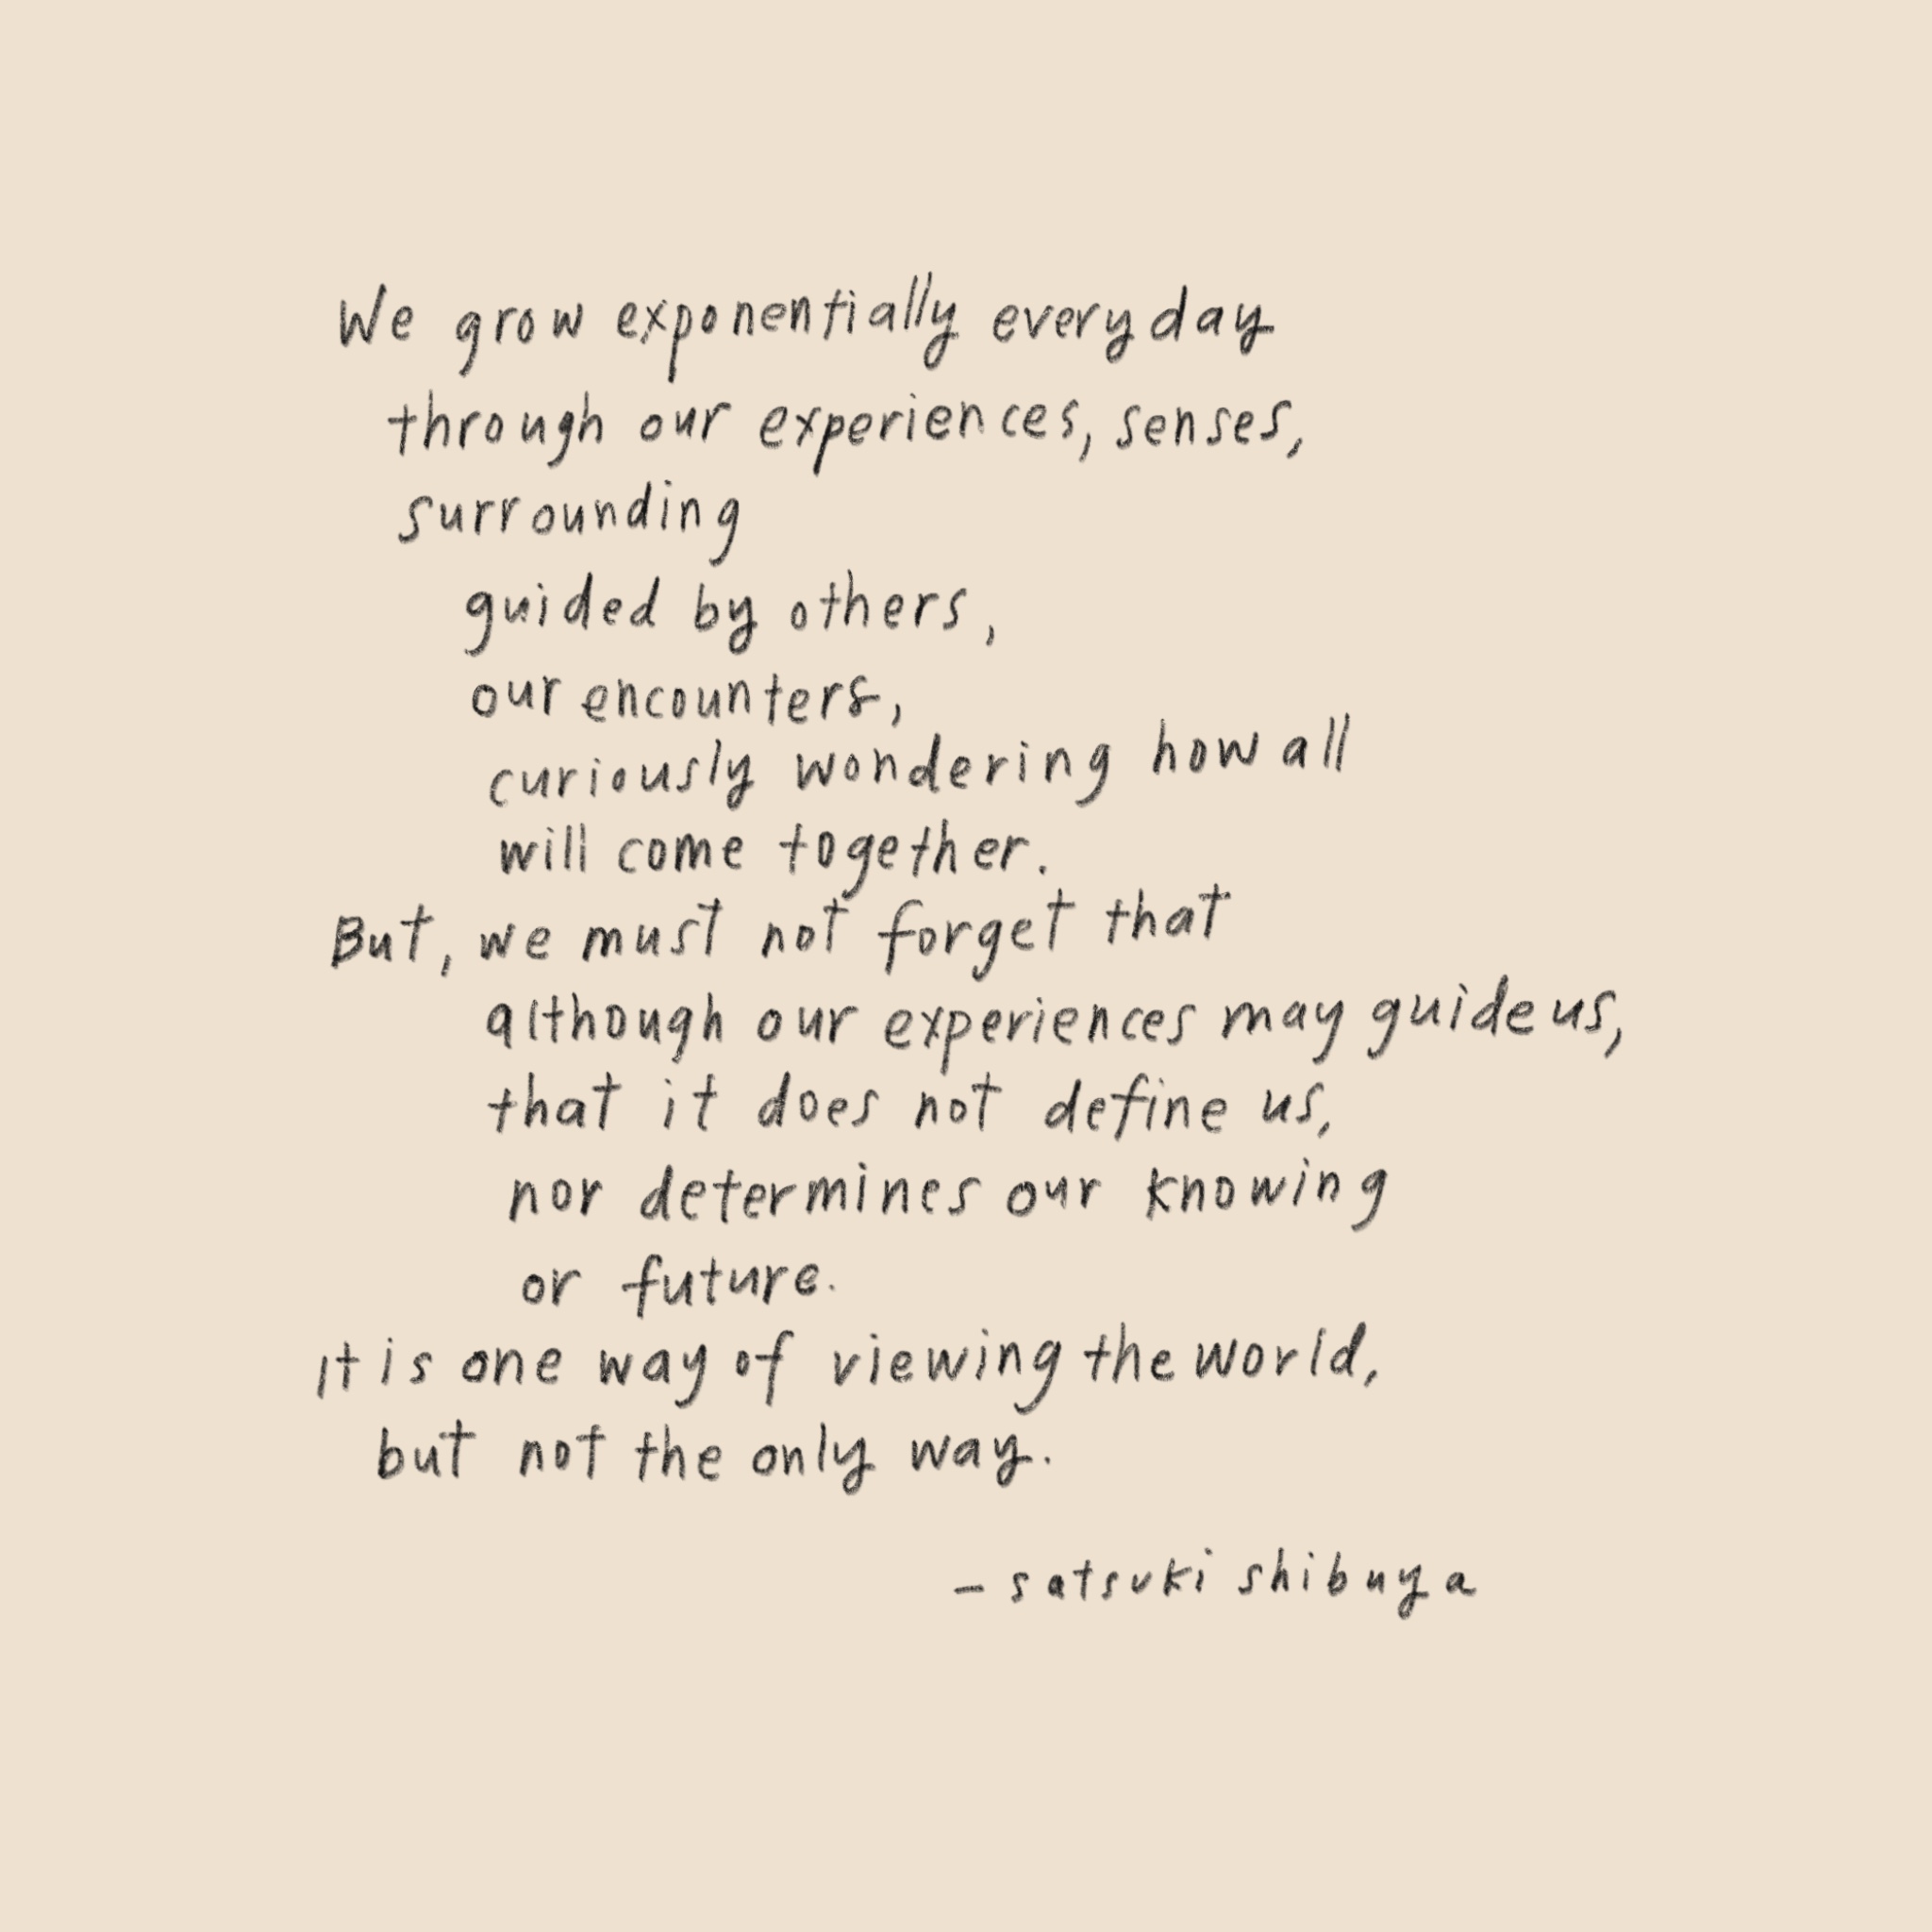 We grow exponentially everyday
through our experiences, senses,
surrounding
guided by others,
our encounters,
curiously wondering how all
will come together.
But, we must not forget that
although our experiences may guide us,
that it does not define us,
nor determines our knowing
or future.
It is one way of viewing the world,
but not the only way.
– satsuki shibuya